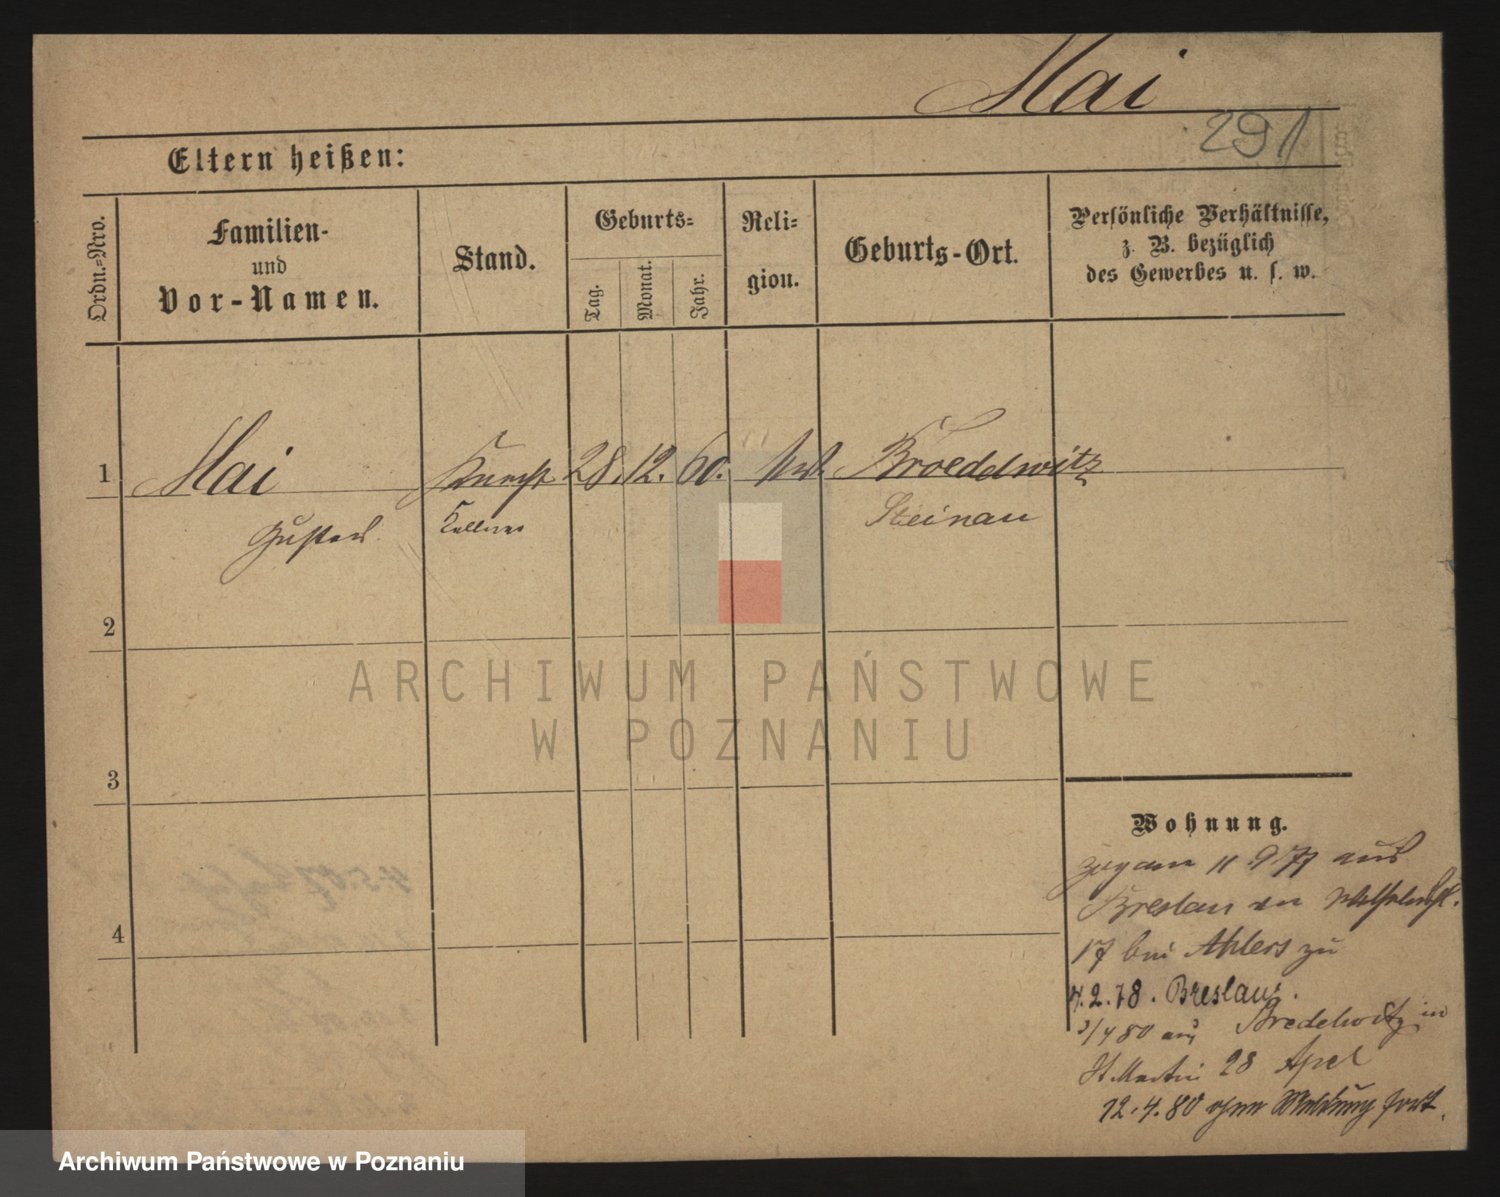 Mai
291
Eltern heißen:
Ordn.=Nro.
Familien-
und
Vor-Namen.
Stand.
Geburts=
Tag.
Monat.
Jahr.
Reli=
gion.
Geburts-Ort.
Persönliche Verhältnisse,
z. B. bezüglich
des Gewerbes u. s. w.
1 Mai 28. 12. 60. Broedelwitz
Gustav Kellner Steinau
2
3
4
Wohnung.
zugam 11 9 77 aus
Breslau
17 bei Ahlers zu
4.2.78. Breslau.
3/4 80 aus Bredelwitz in
St. Martin 28 Apel
12.4.80 ohne Meldung fort.
ARCHIWUM PAŃSTWOWE
W POZNANIU
Archiwum Państwowe w Poznaniu